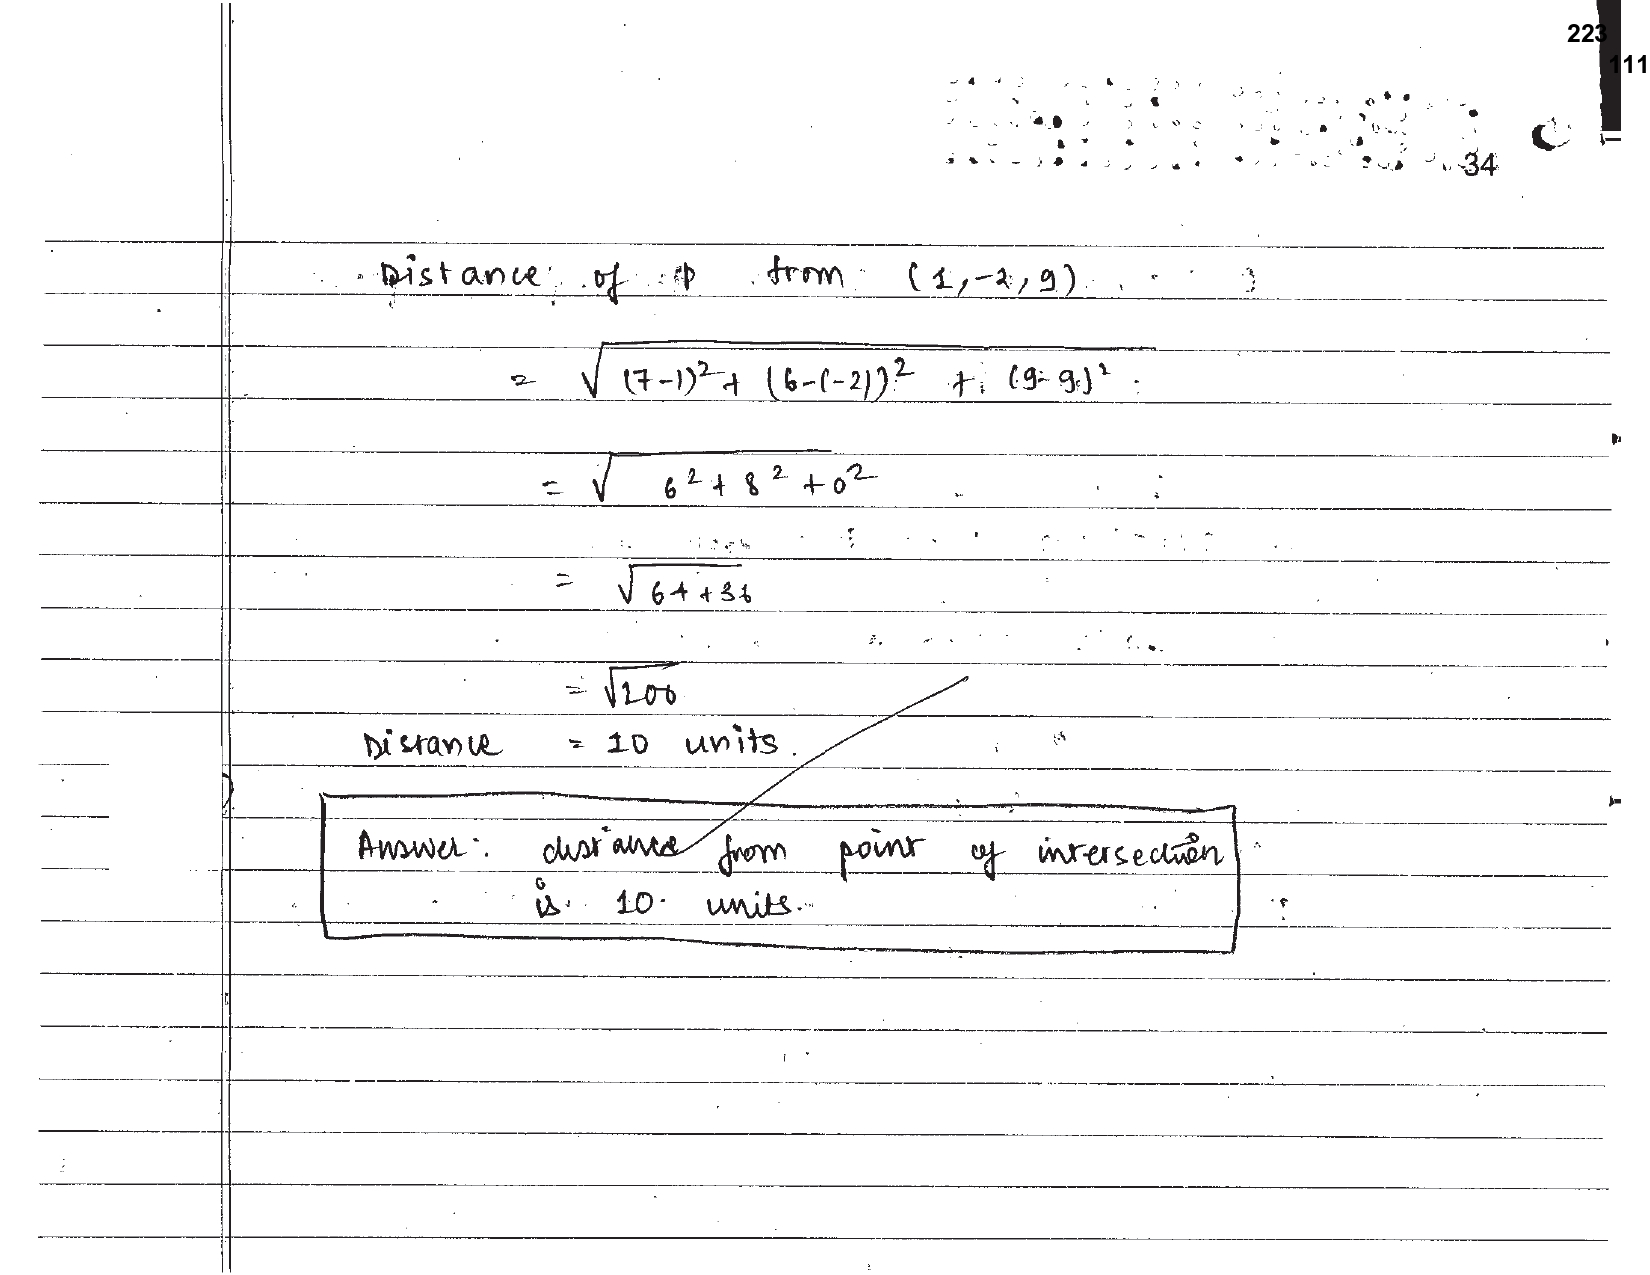 223
111
34
Distance of P from (1,-2,9)
= √(7-1)² + (6-(-2))² + (9-9)²
= √6² + 8² + 0²
= √64+36
= √100
Distance = 10 units.
Answer:. distance from point of intersection
is 10 units.